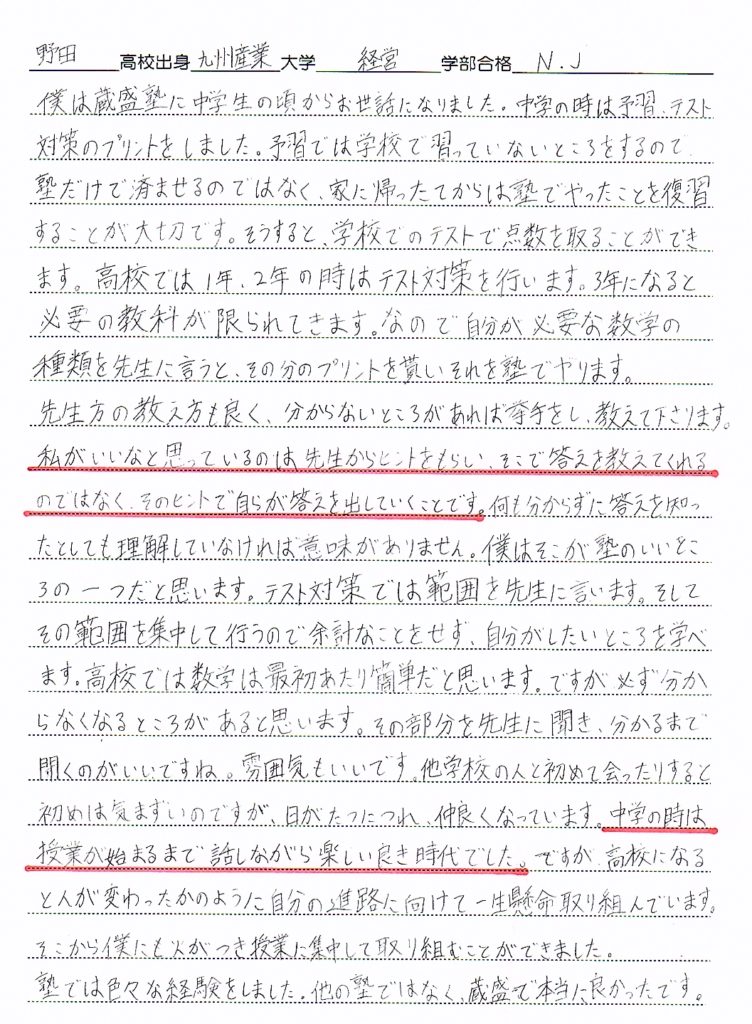 野田 高校出身 九州産業 大学 経営 学部合格 N.J
僕は蔵盛塾に中学生の頃からお世話になりました。中学の時は予習、テスト
対策のプリントをしました。予習では学校で習っていないところをするので、
塾だけで済ませるのではなく、家に帰ったてからは塾でやったことを復習
することが大切です。そうすると、学校でのテストで点数を取ることができ
ます。高校では1年、2年の時はテスト対策を行います。3年になると
必要の教科が限られてきます。なので自分が必要な数学の
種類を先生に言うと、その分のプリントを貰いそれを塾でやります。
先生方の教え方も良く、分からないところがあれば挙手をし、教えて下さります。
私がいいなと思っているのは先生からヒントをもらい、そこで答えを教えてくれる
のではなく、そのヒントで自らが答えを出していくことです。何も分からずに答えを知っ
たとしても理解していなければ意味がありません。僕はそこが塾のいいとこ
ろの一つだと思います。テスト対策では範囲を先生に言います。そして
その範囲を集中して行うので余計なことをせず、自分がしたいところを学べ
ます。高校では数学は最初あたり簡単だと思います。ですが必ず分か
らなくなるところがあると思います。その部分を先生に聞き、分かるまで
聞くのがいいですね。雰囲気もいいです。他学校の人と初めて会ったりすると
初めは気まずいのですが、日がたつにつれ、仲良くなっています。中学の時は
授業が始まるまで話しながら楽しい良き時代でした。ですが、高校になる
と人が変わったかのように自分の進路に向けて一生懸命取り組んでいます。
そこから僕にも火がつき授業に集中して取り組むことができました。
塾では色々な経験をしました。他の塾ではなく、蔵盛で本当に良かったです。